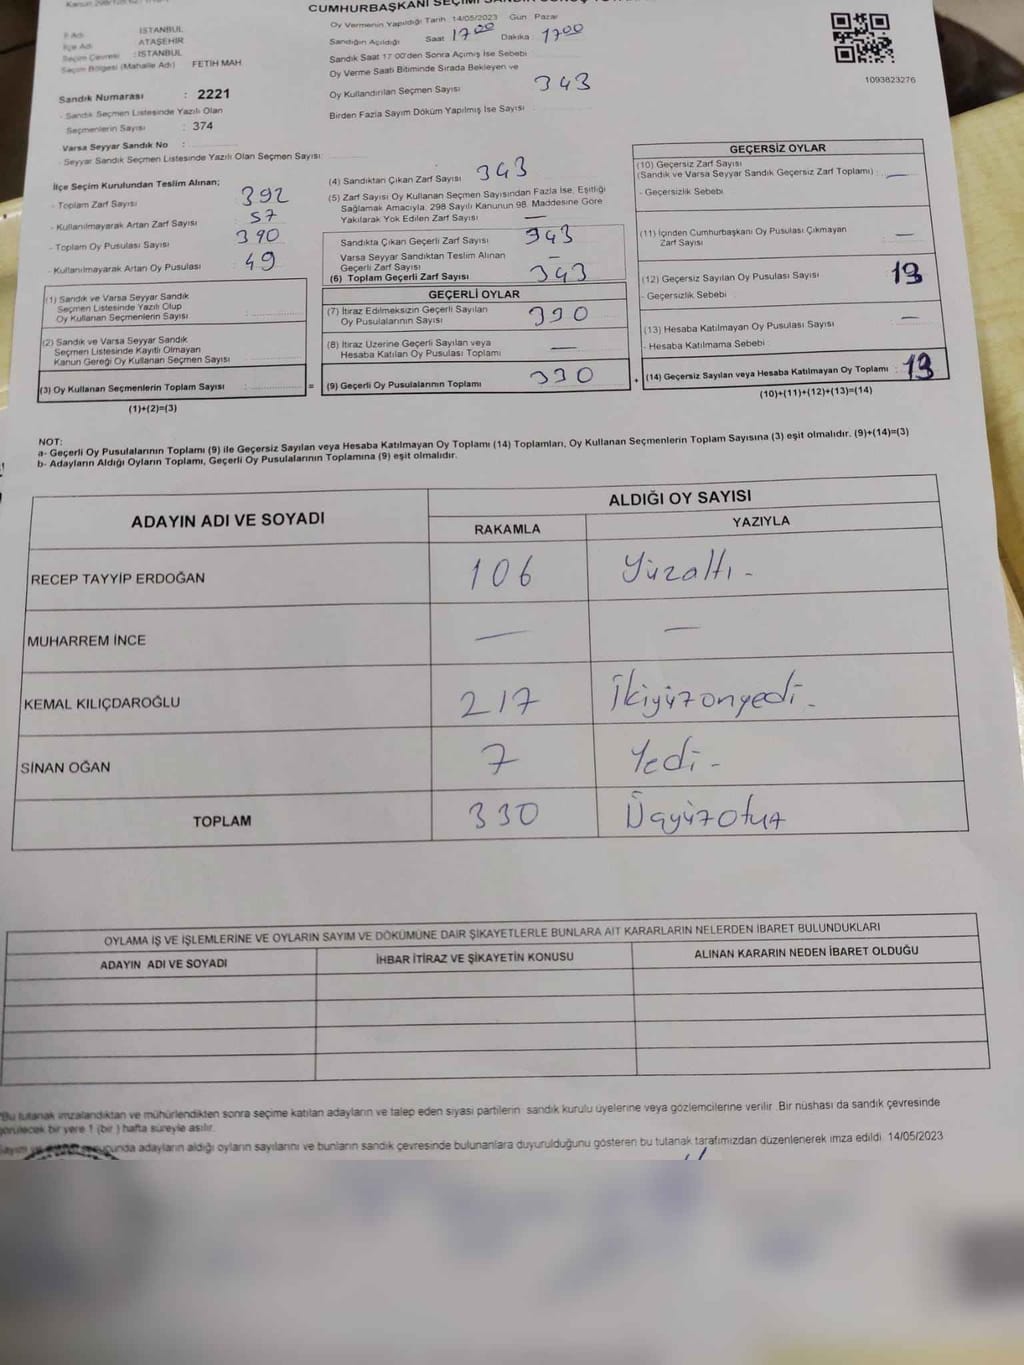 CUMHURBAŞKANI SEÇİMİ
İl Adı : İSTANBUL
İlçe Adı : ATAŞEHİR
Seçim Çevresi : İSTANBUL
Seçim Bölgesi (Mahalle Adı) FETİH MAH.
Sandık Numarası : 2221
- Sandık Seçmen Listesinde Yazılı Olan
Seçmenlerin Sayısı : 374
Varsa Seyyar Sandık No :
- Seyyar Sandık Seçmen Listesinde Yazılı Olan Seçmen Sayısı:
Oy Vermenin Yapıldığı Tarih :14/05/2023 Gün : Pazar
Sandığın Açıldığı Saat 17 00 Dakika : 1700
Sandık Saat 17:00'den Sonra Açımış İse Sebebi
Oy Verme Saati Bitiminde Sırada Bekleyen ve
Oy Kullandırılan Seçmen Sayısı 343
Birden Fazla Sayım Döküm Yapılmış İse Sayısı
1093823276
İlçe Seçim Kurulundan Teslim Alınan;
- Toplam Zarf Sayısı 392
- Kullanılmayarak Artan Zarf Sayısı 57
- Toplam Oy Pusulası Sayısı 390
- Kullanılmayarak Artan Oy Pusulası 49
(1) Sandık ve Varsa Seyyar Sandık
Seçmen Listesinde Yazılı Olup
Oy Kullanan Seçmenlerin Sayısı :
(2) Sandık ve Varsa Seyyar Sandık
Seçmen Listesinde Kayıtlı Olmayan
Kanun Gereği Oy Kullanan Seçmen Sayısı :
(3) Oy Kullanan Seçmenlerin Toplam Sayısı : =
(1)+(2)=(3)
(4) Sandıktan Çıkan Zarf Sayısı : 343
(5) Zarf Sayısı Oy Kullanan Seçmen Sayısından Fazla İse, Eşitliği
Sağlamak Amacıyla, 298 Sayılı Kanunun 98. Maddesine Göre
Yakılarak Yok Edilen Zarf Sayısı —
Sandıkta Çıkan Geçerli Zarf Sayısı 343
Varsa Seyyar Sandıktan Teslim Alınan
Geçerli Zarf Sayısı —
(6) Toplam Geçerli Zarf Sayısı 343
GEÇERLİ OYLAR
(7) İtiraz Edilmeksizin Geçerli Sayılan
Oy Pusulalarının Sayısı 330
(8) İtiraz Üzerine Geçerli Sayılan veya
Hesaba Katılan Oy Pusulası Toplamı —
(9) Geçerli Oy Pusulalarının Toplamı 330 +
GEÇERSİZ OYLAR
(10) Geçersiz Zarf Sayısı
(Sandık ve Varsa Seyyar Sandık Geçersiz Zarf Toplamı) : —
- Geçersizlik Sebebi :
(11) İçinden Cumhurbaşkanı Oy Pusulası Çıkmayan
Zarf Sayısı —
(12) Geçersiz Sayılan Oy Pusulası Sayısı 13
- Geçersizlik Sebebi :
(13) Hesaba Katılmayan Oy Pusulası Sayısı —
- Hesaba Katılmama Sebebi :
(14) Geçersiz Sayılan veya Hesaba Katılmayan Oy Toplamı : 13
(10)+(11)+(12)+(13)=(14)
NOT:
a- Geçerli Oy Pusulalarının Toplamı (9) ile Geçersiz Sayılan veya Hesaba Katılmayan Oy Toplamı (14) Toplamları, Oy Kullanan Seçmenlerin Toplam Sayısına (3) eşit olmalıdır. (9)+(14)=(3)
b- Adayların Aldığı Oyların Toplamı, Geçerli Oy Pusulalarının Toplamına (9) eşit olmalıdır.
ADAYIN ADI VE SOYADI ALDIĞI OY SAYISI
RAKAMLA YAZIYLA
RECEP TAYYİP ERDOĞAN 106 Yüzaltı -
MUHARREM İNCE — —
KEMAL KILIÇDAROĞLU 217 İkiyüzonyedi -
SİNAN OĞAN 7 Yedi -
TOPLAM 330 Üçyüzotuz
OYLAMA İŞ VE İŞLEMLERİNE VE OYLARIN SAYIM VE DÖKÜMÜNE DAİR ŞİKAYETLERLE BUNLARA AİT KARARLARIN NELERDEN İBARET BULUNDUKLARI
ADAYIN ADI VE SOYADI İHBAR İTİRAZ VE ŞİKAYETİN KONUSU ALINAN KARARIN NEDEN İBARET OLDUĞU
*Bu tutanak imzalandıktan ve mühürlendikten sonra seçime katılan adayların ve talep eden siyasi partilerin sandık kurulu üyelerine veya gözlemcilerine verilir. Bir nüshası da sandık çevresinde
görülecek bir yere 1 (bir ) hafta süreyle asılır.
Sayım adayların aldığı oyların sayılarını ve bunların sandık çevresinde bulunanlara duyurulduğunu gösteren bu tutanak tarafımızdan düzenlenerek imza edildi. 14/05/2023